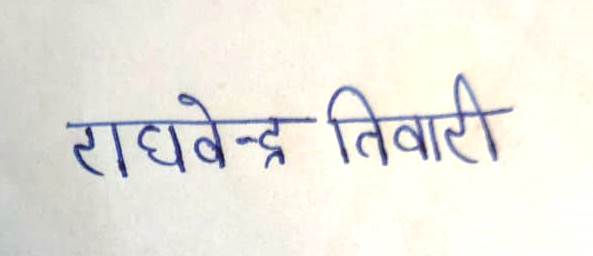 राघवेन्द्र तिवारी